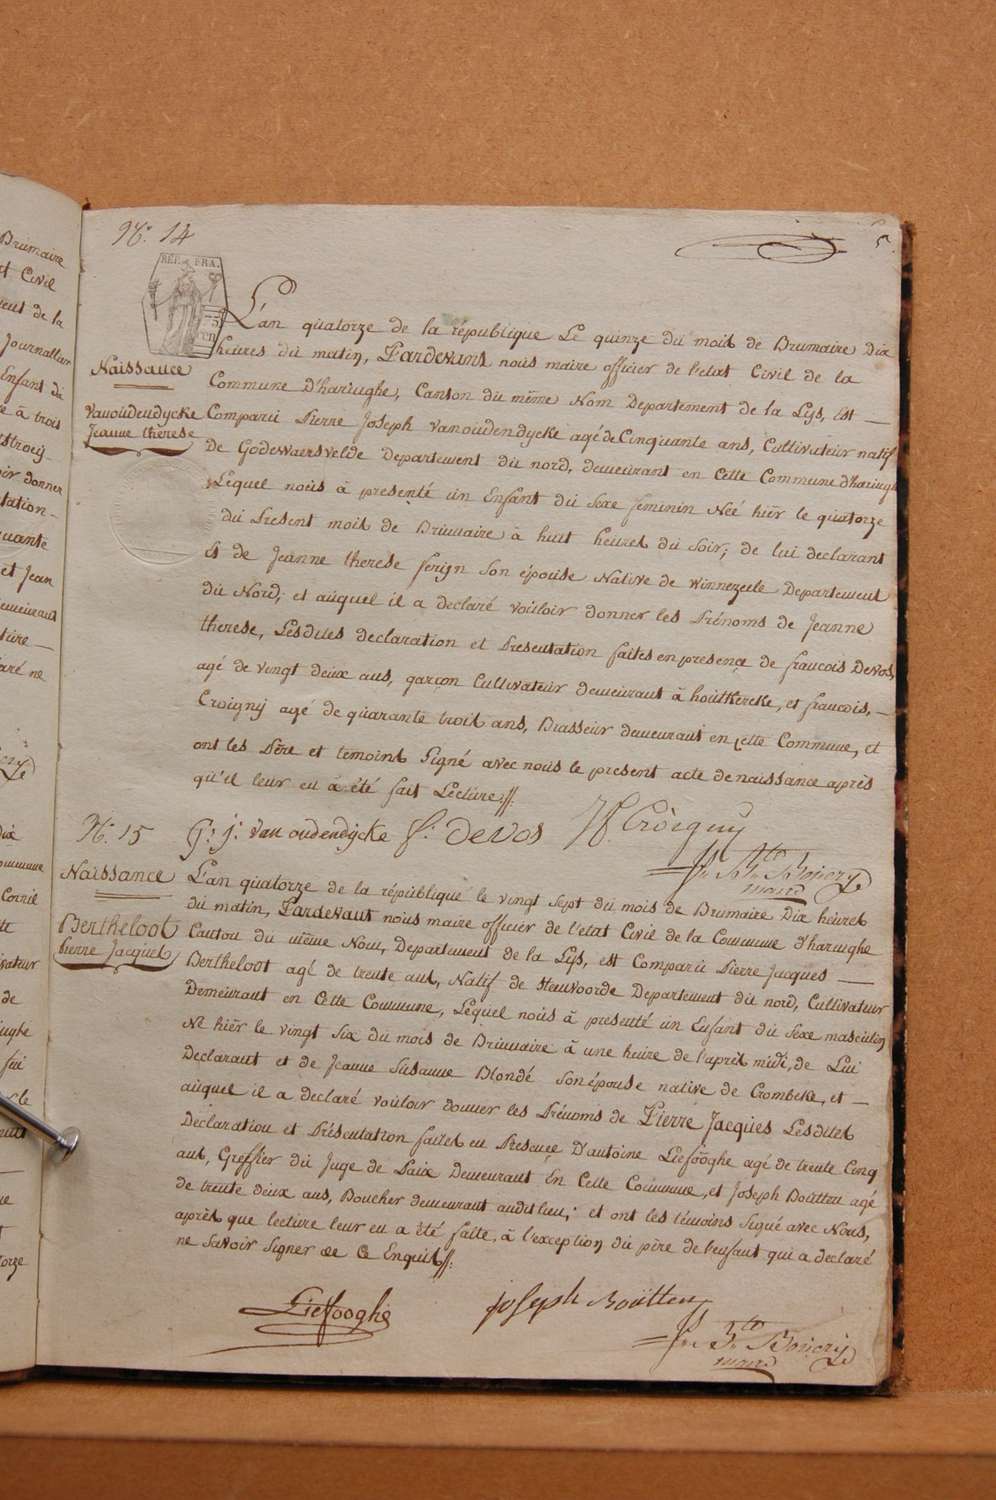 Brumaire
Civil
de la
Journallier
Enfant de
à trois
donner
tation
quante
et Jean
demeurant
ture
aré ne
5
N°. 14
REP. FRA.
L'an quatorze de la république Le quinze du mois de Brumaire Dix
heures du matin, Pardevant nous maire officier de l'etat Civil de la
Naissance
Commune D'haringhe, Canton du même Nom Departement de la Lys, Est
Vanoudendycke
Jeanne therese
Comparû Pierre Joseph vanoudendycke agé de Cinquante ans, Cultivateur natif
De Godewaersvelde Departement du nord, demeurant en Cette Commune d'haringhe
Lequel nous à presenté un Enfant du Sexe feminin Néé hiér le quatorze
du Present mois de Brumaire à huit heures du Soir; de lui declarant
Et de Jeanne therese feryn Son épouse Native de Winnezeele Departement
du Nord; et auquel il a declaré vouloir donner les Prénoms de Jeanne
therese, Lesdites declaration et Presentation faites en presence de francois Devos,
agé de vingt deux ans, garçon Cultivateur demeurant à houtkercke, et francois,
Croigny agé de quarante trois ans, Brasseur demeurant en cette Commune, et
ont les Pére et temoins Signé avec nous le present acte de naissance après
qu'il leur en à été fait Lecture.//.
P: J: van oudendycke f: devos Croigny
maire
N°. 15
Naissance
L'an quatorze de la république le vingt Sept du mois de Brumaire Dix heures
du matin, Pardevant nous maire officier de l'etat Civil de la Commune d'haringhe
Bertheloot
Pierre Jacques
Canton du même Nom, Departement de la Lys, est Comparû Pierre Jacques
Bertheloot agé de trente ans, Natif de Houvoorde Departement du nord, Cultivateur
Demeurant en Cette Commune, Lequel nous à presenté un Enfant du Sexe masculin
Né hiér le vingt Six du mois de Brumaire à une heure de l'aprés midi, de Lui
Declarant et de Jeanne Susanne Blondé Son épouse native de Crombeke, et
auquel il a declaré vouloir donner les Prénoms de Pierre Jacques Lesdites
Declaration et Présentation faites en Presence D'antoine Liefooghe agé de trente Cinq
ans, Greffier du Juge de Paix Demeurant En Cette Commune, et Joseph Boutten agé
de trente deux ans, Boucher demeurant audit lieu; et ont les témoins Signé avec Nous,
après que lecture leur en a été faite, à l'exception du pére de l'enfant qui a declaré
ne Savoir Signer de Ce Enquis//.
Liefooghe Joseph Boutten
maire